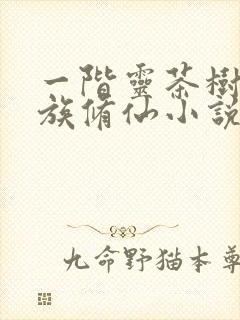 一階靈茶樹
族脩仙小說
九命野猫本尊